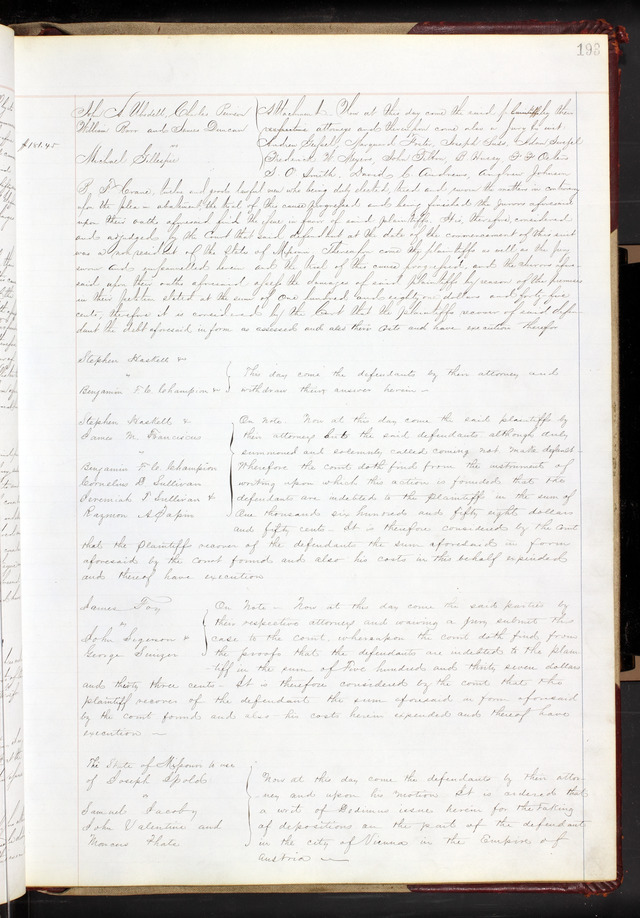 193
John A Ubsdell, Charles Pierson } Attachment. Now at this day come the said plaintiffs by their
William Barr and James Duncan respective attorneys and thereupon come also a Jury to wit
$181.45
vs Andrew Joseph
Michael Gillespie Frederick W Meyers, John B Hussey
S. O. Smith, David C Andrews, Johnson
Crane, twelve good and lawful men who being duly elected, tried and sworn the matters in contrary
upon the plea in abatement the trial of this cause progressed and being finished the jurors aforesaid
upon their oaths aforesaid find the issue in favor of said plaintiffs. It is therefore considered
and adjudged by the Court that said defendant at the date of the commencement of this suit
was a non resident of the State of Missouri Thereupon come the plaintiffs as well as the jury
sworn and empannelled herein and the trial of this cause progressed, and the jurors afore-
said, upon their oaths aforesaid assess the damages of said plaintiffs by reason of the premises
in their petition stated at the sum of One hundred and eighty one dollars and forty five
cents, therefore it is considered by the Court that the plaintiffs recover of said defen-
dant the debt aforesaid in form as assessed and also their costs and have execution therefor
Stephen Haskell &c
vs } This day come the defendants by their attorney and
Benjamin F. W. Champion & withdraw their answer herein —
Stephen Haskell & On Note. Now at this day come the said plaintiffs by
James M. Franciscus their attorney but the said defendants although duly
vs summoned and solemnly called coming not make default
Benjamin F W Champion Wherefore the court doth find from the instrument of
Cornelius D Sullivan writing upon which this action is founded that the
Jeremiah T Sullivan & defendants are indebted to the plaintiffs in the sum of
Raymon A Papin One thousand six hundred and fifty eight dollars
and fifty cents — It is therefore considered by the court
that the plaintiffs recover of the defendants the sum aforesaid in form
aforesaid by the court found and also his costs in this behalf expended
and thereof have execution
James Foy On Note — Now at this day come the said parties by
vs their respective attorneys and waiving a jury submit the
John Sigerson & case to the court, whereupon the court doth find from
George Sunger the proofs that the defendants are indebted to the plain
tiff in the sum of Five hundred and thirty seven dollars
and thirty three cents — It is therefore considered by the court that the
plaintiff recover of the defendant the sum aforesaid in form aforesaid
by the court found and also his costs herein expended and thereof have
execution —
The State of Missouri to use
of Joseph Spolds Now at this day come the defendants by their attor-
vs ney and upon his motion It is ordered that
Samuel Jacoby a writ of Dedimus issue herein for the taking
John Valentine and of depositions on the part of the defendants
Marcus Thale in the city of Vienna in the Empire of
Austria —